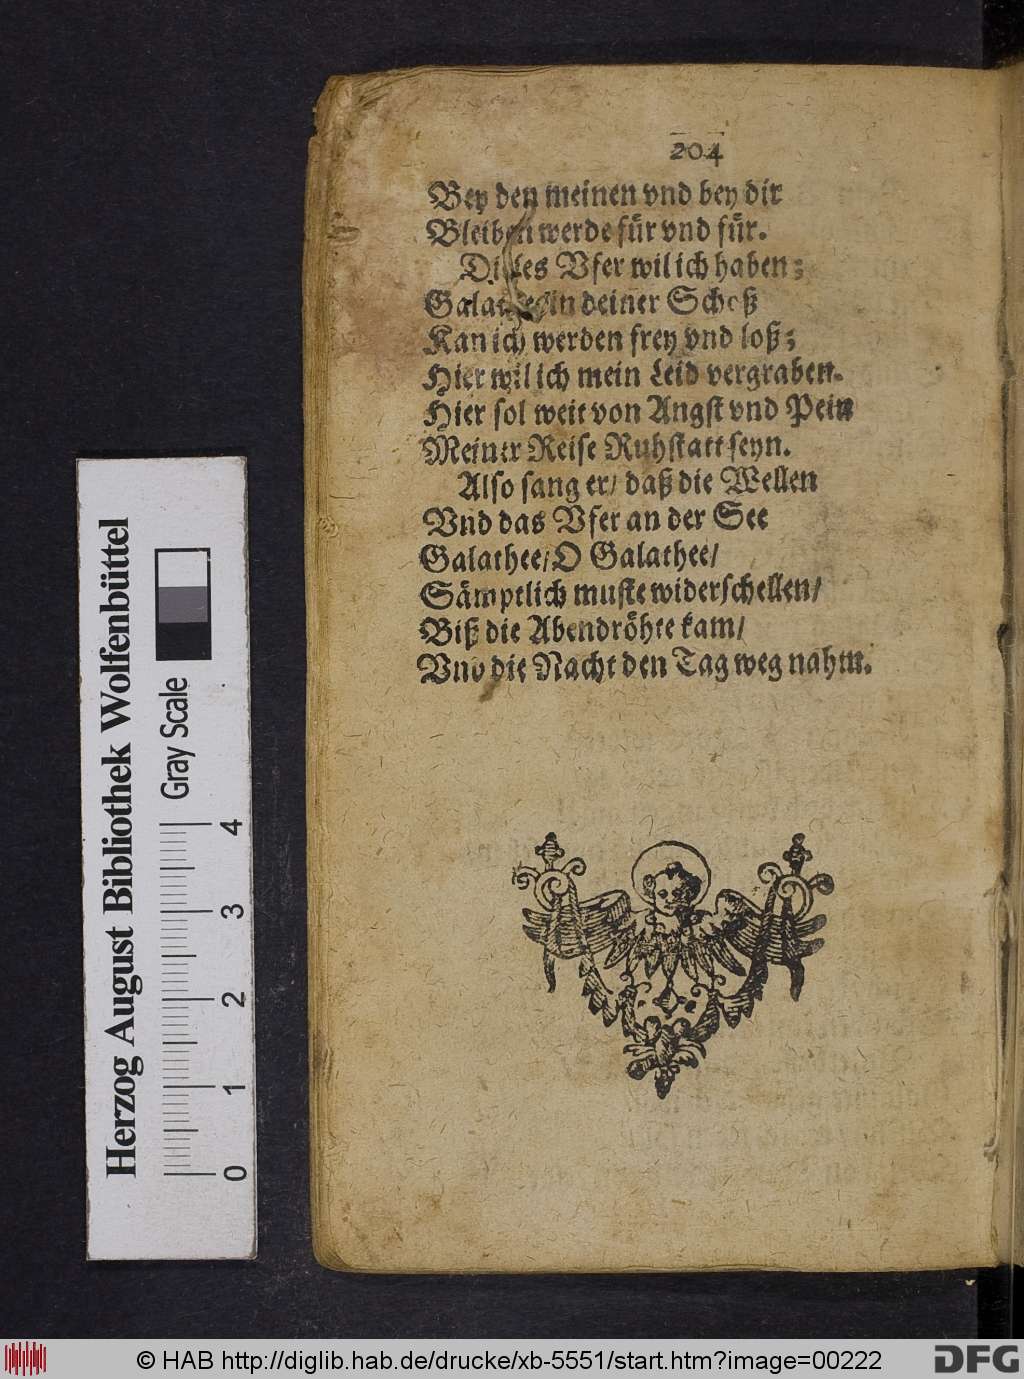 204
Bey den meinen vnd bey dir
Bleiben werde für vnd für.
Dieses Vfer wil ich haben;
Galathee in deiner Schoß
Kan ich werden frey vnd loß;
Hier wil ich mein Leid vergraben.
Hier sol weit von Angst vnd Pein
Meiner Reise Ruhstatt seyn.
Also sang er/ daß die Wellen
Vnd das Vfer an der See
Galathee/ O Galathee/
Sämptlich muste widerschellen/
Biß die Abendröhte kam/
Vnd die Nacht den Tag weg nahm.
Herzog August Bibliothek Wolfenbüttel
Gray Scale
0 1 2 3 4
© HAB http://diglib.hab.de/drucke/xb-5551/start.htm?image=00222
DFG